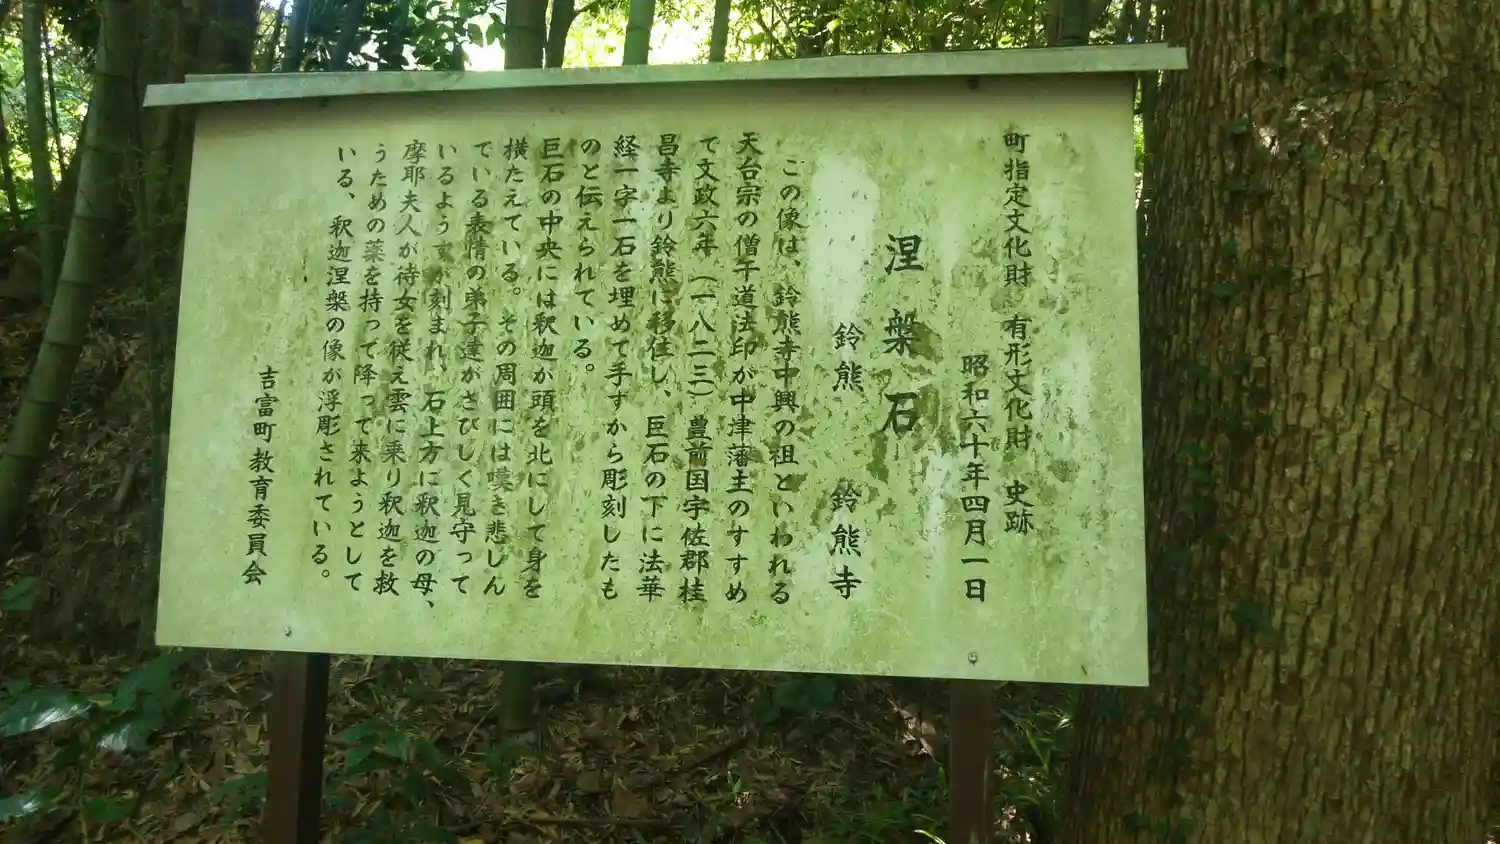 町指定文化財 有形文化財 史跡
昭和六十年四月一日
涅槃石
鈴熊 鈴熊寺
この像は、鈴熊寺中興の祖といわれる
天台宗の僧千道法印が中津藩主のすすめ
で文政六年(一八二三)豊前国宇佐郡桂
昌寺より鈴熊に移住し、巨石の下に法華
経一字一石を埋めて手すから彫刻したも
のと伝えられている。
巨石の中央には釈迦が頭を北にして身を
横たえている。その周囲には嘆き悲しん
でいる表情の弟子達がさびしく見守って
いるようすが刻まれ、石上方に釈迦の母、
摩耶夫人が待女を従え雲に乗り釈迦を救
うための薬を持って降って来ようとして
いる、釈迦涅槃の像が浮彫されている。
吉富町教育委員会